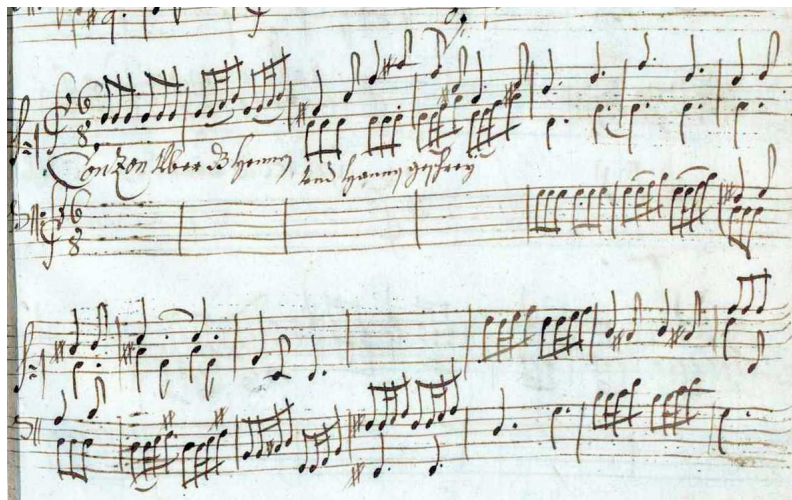 Canzon Über dß Henner
und Hannergeschrey